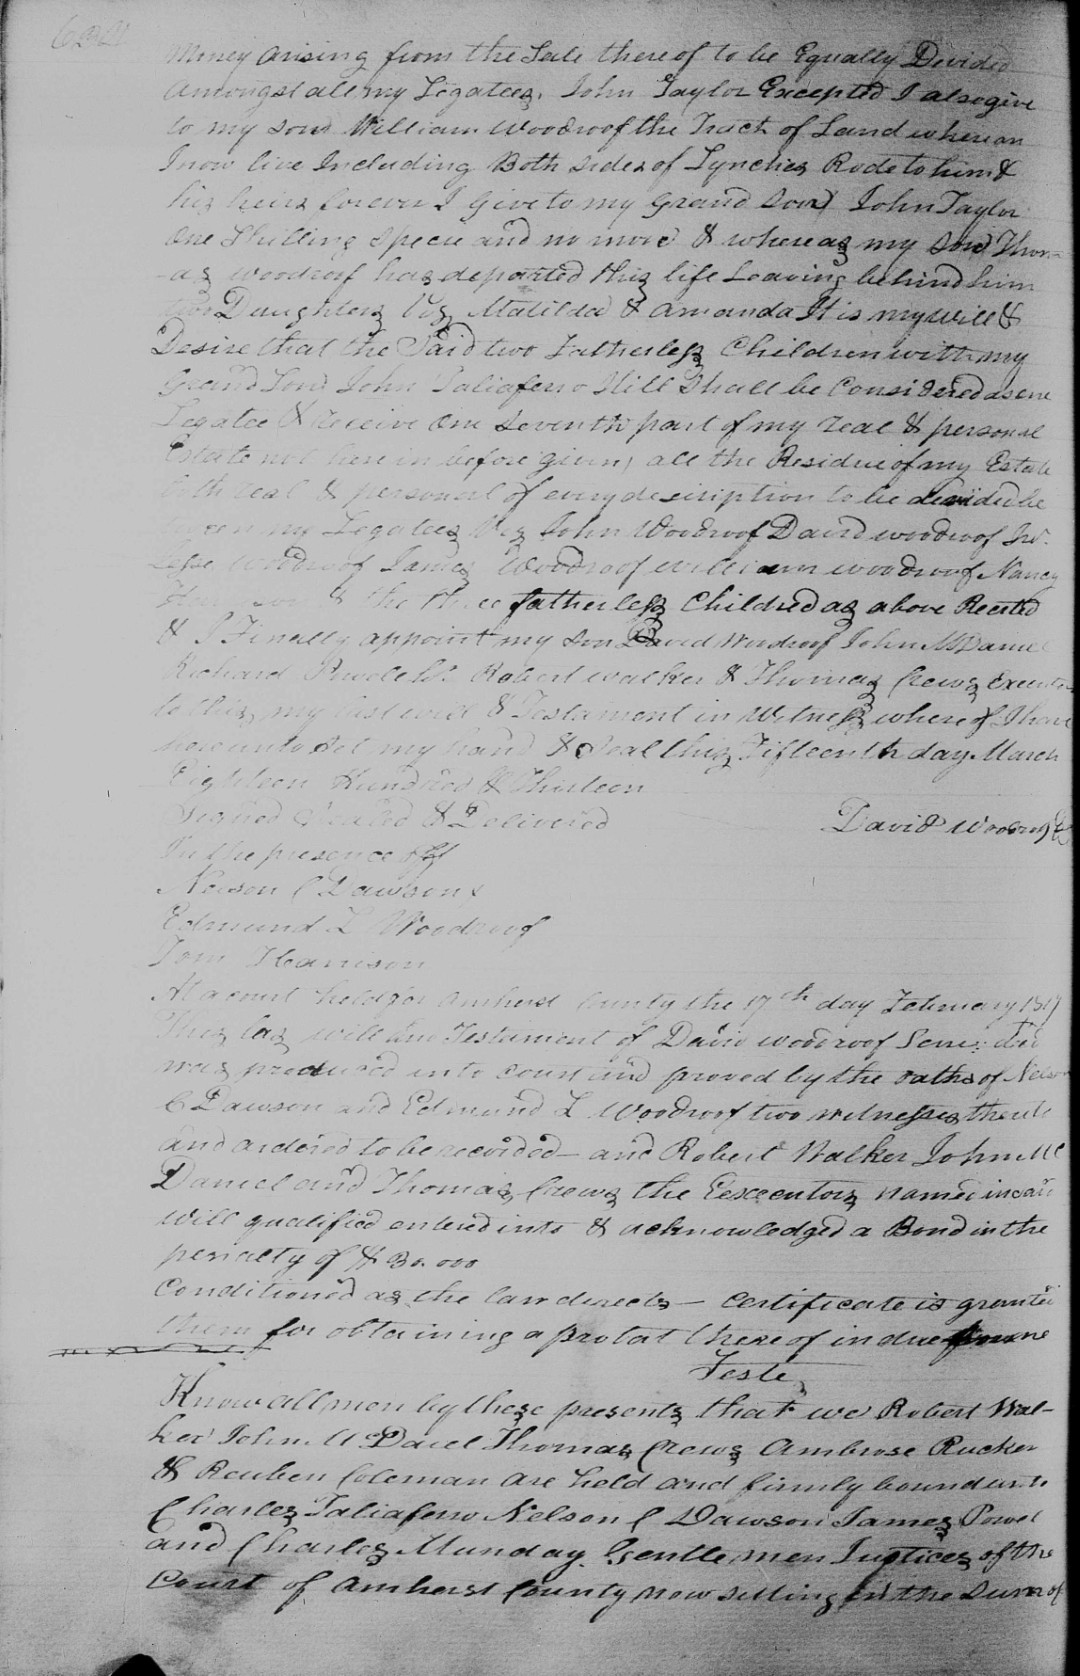 Money arising from the Sale thereof to be Equally Devided
Amongst all my Legatees. John Taylor Excepted I also give
to my sone William Woodroof the Tract of Land whereon
I now live Including Both sides of Lynches Rode to him &
his heirs forever I give to my Grand Son John Taylor
One Shilling Specie and no more & whereas my Son Thom-
-as woodroof has departed this life Leaving behind him
two Daughters Viz Matilda & Amanda It is my will &
Desire that the Said two Fatherless Children with my
Grand Son John Taliaferro Hill Shall be Considered as one
Legatee & receive One Seventh part of my real & personal
Estate not here in before given, all the Residue of my Estate
both real & personal of every description to be devided be
tween my Legatees Viz John Woodroof David woodroof Jnr.
Jesse Woodroof James Woodroof William woodroof Nancy
& the three fatherless Children as above Recited
& I Finally appoint my Son David Woodroof John McDaniel
Richard Powell Robert walker & Thomas Crews Executors
to this, my last will & Testament in Witness where of I have
here unto Set my hand & Seal this Fifteenth day March
Eighteen Hundred & Thirteen
Signed Sealed & Delivered David Woodroof
In the presence off
Nelson C Dawson
Edmund L Woodroof
Tom Harrison
At a court held for Amherst County the 17th day February 1817
This las will and Testament of David woodroof Senr: decd
was produced into court and proved by the oaths of Nelson
C Dawson and Edmund L Woodroof two witnesses thereto
and ordered to be recorded — and Robert Walker John Mc
Daniel and Thomas Crews the Exceentors named in said
will qualified entered into & acknowledged a Bond in the
penalty of $ 30.000
Conditioned as the law directs — certificate is granted
them for obtaining a probat there of in due forme
Teste
Know all men by these presents that we Robert Wal-
ker John McDaiel Thomas Crews Ambrose Rucker
& Reuben Coleman are held and firmly bound unto
Charles Taliaferro Nelson C Dawson James Powel
and Charles Munday Gentlemen Justices of the
Court of Amherst County now sitting in the sum of